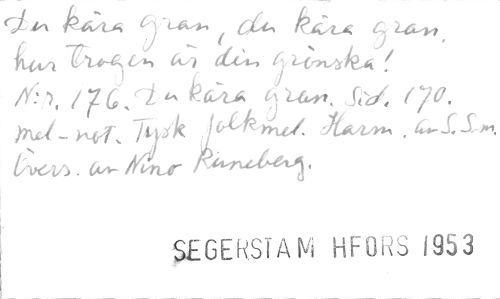 Du kära gran, du kära gran,
hur trogen är din grönska!
N:r. 176. Du kära gran. Sid. 170.
mel-not. Tysk folkmel. Harm. av S.S-m.
Övers. av Nino Runeberg.
SEGERSTAM HFORS 1953